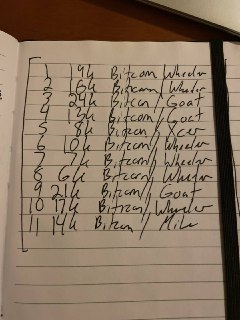 1 19k Bitcoin/Wheeler
2 16k Bitcoin/Wheeler
3 24k Bitcoin/Goat
4 13k Bitcoin/Goat
5 8k Bitcoin/
6 10k Bitcoin/Wheeler
7 7k Bitcoin/Wheeler
8 6k Bitcoin/Wheeler
9 21k Bitcoin/Goat
10 17k Bitcoin/Wheeler
11 14k Bitcoin/Mike